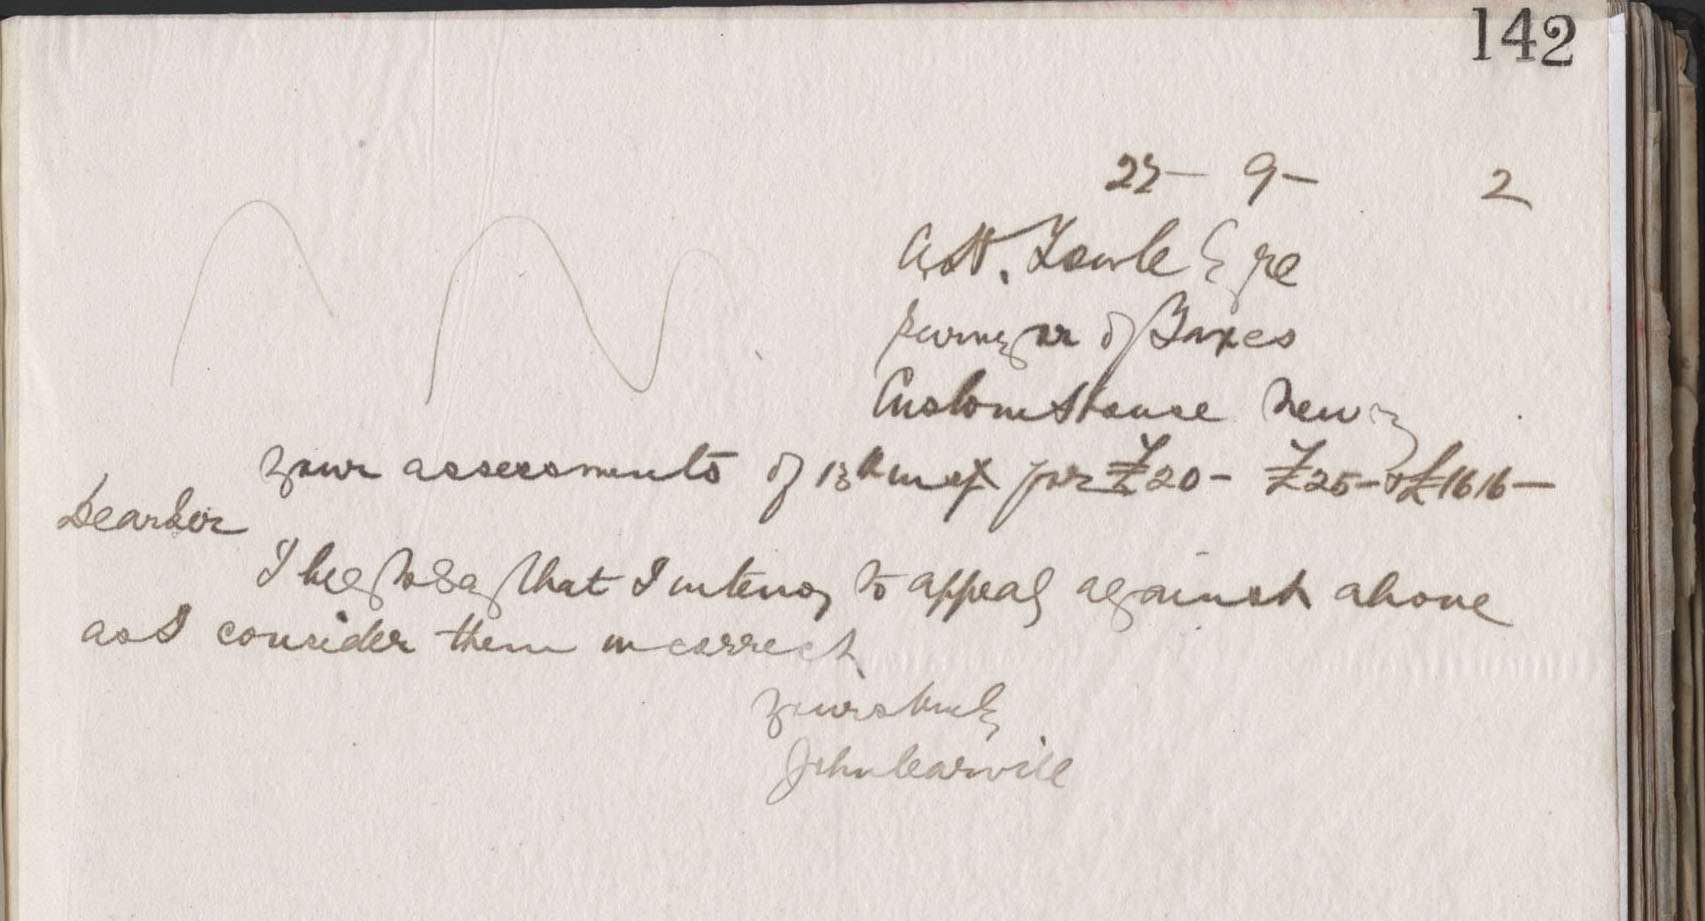 142
27- 9- 2
A.H. Fowle Esqre
Surveyor of Taxes
Customs House Newry
Your assessments of 13th for £20- £25- & £16 16-
Dear Sir
I beg to say that I intend to appeal against above
as I consider them incorrect
Yours truly
John Carvill